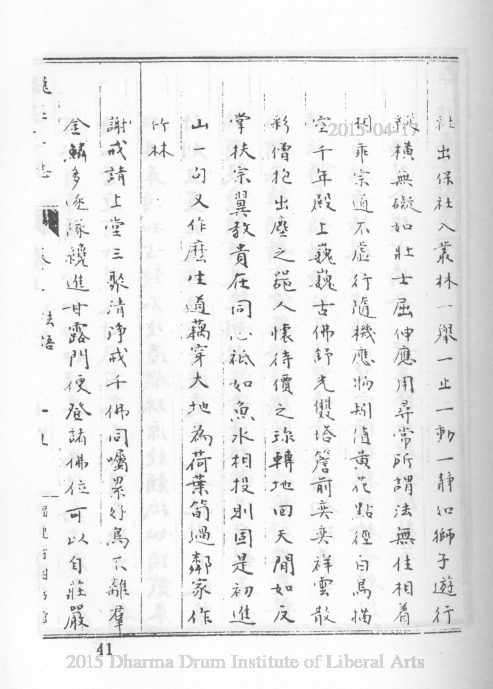 社出保社入叢林一舉一止一動一靜如獅子遊行
縱橫無礙如壯士屈伸應用尋常所謂法無住相着
相乖宗道不虛行隨機應物矧值黃花點徑白鳥描
空千年殿上巍巍古佛舒光雙塔簷前奕奕祥雲散
彩僧抱出塵之器人懷待價之珍轉地回天間如反
掌扶宗翼教貴在同心祗如魚水相投則固是初進
山一句又作麼生道藕穿大地為荷葉筍過鄰家作
竹林
謝戒請上堂三聚清淨戒千佛同囑累好鳥不離羣
金鱗多逐隊纔進甘露門便登諸佛位可以自莊嚴
志
法語
41
2015-04-17
2015 Dharma Drum Institute of Liberal Arts